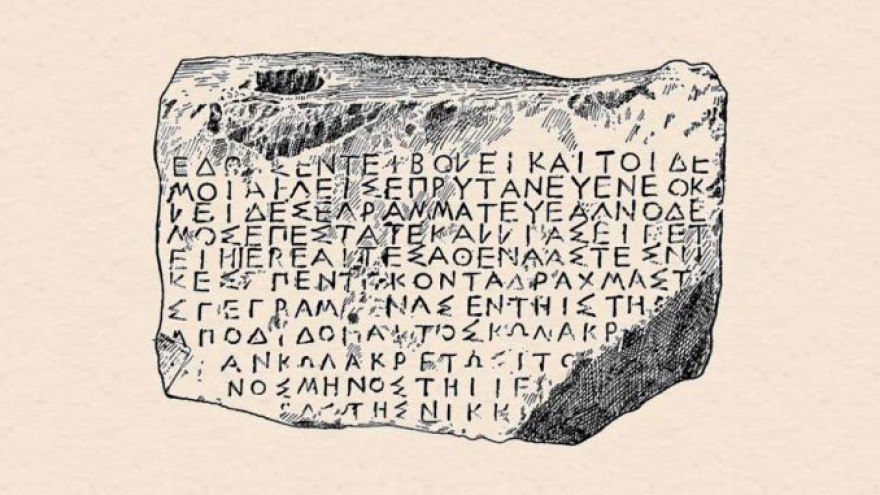 ΕΔΟ ΣΕΝΤΕΙΒΟΛΕΙΚΑΙΤΟΙΔΕ
ΜΟΙΑΙΓΕΙΣΕΠΡΥΤΑΝΕΥΕΝΕΟΚ
ΛΕΙΔΕΣΕΓΡΑΜΜΑΤΕΥΕΑΓΝΟΔΕ
ΜΟΣΕΠΕΣΤΑΤΕΚΑΛΛΙΑΣΕΙΠΕΤ
ΕΙΗΙΕΡΕΑΙΤΕΣΑΘΕΝΑΑΣΤΕΣΝΙ
ΚΕΣΠΕΝΤΕΚΟΝΤΑΔΡΑΧΜΑΣΤ
ΣΓΕΓΡΑΜ ΕΝΑΣΕΝΤΗΙΣΤΗ
ΑΠΟΔΙΔΟΝΑΙΤΟΣΚΩΛΑΚΡ
ΑΝΚΩΛΑΚΡΕΤΩΣΙΤΟ
ΝΟΣΜΗΝΟΣΤΗΙΙΕ
ΤΗΣΝΙΚΗ